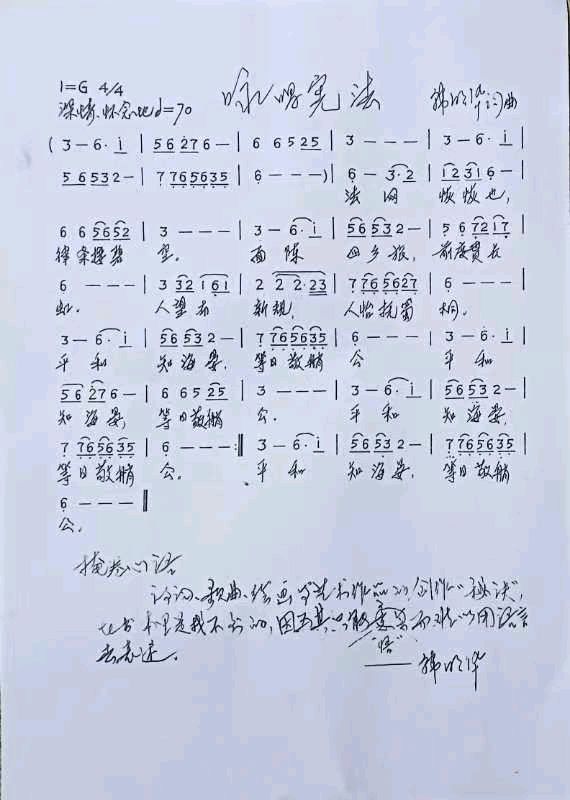 1=G 4/4 咏唱宪法
深情、怀念地 ♩=70 韩明华 词曲
( 3 – 6· i | 5 6 2 7 6 – | 6 6 5 2 5 | 3 – – – | 3 – 6· i |
5 6 5 3 2 – | 7 7 6 5 6 3 5 | 6 – – – ) | 6 – 3·2 | 1 2 3 1 6 – |
法 网 恢 恢 也,
6 6 5 6 5 2 | 3 – – – | 3 – 6· i | 5 6 5 3 2 – | 5 6 7 2 1 7 |
律 条
6 – – – | 3 3 2 1 6 1 | 2 2 2·2 3 | 7 7 6 5 6 2 7 | 6 – – – |
虹。 人 望 新 规, 人 怡 桐。
3 – 6· i | 5 6 5 3 2 – | 7 7 6 5 6 3 5 | 6 – – – | 3 – 6· i |
平 和 知 海 晏, 等 日 敬 艄 公 平 和
5 6 2 7 6 – | 6 6 5 2 5 | 3 – – – | 3 – 6· i | 5 6 5 3 2 – |
知 海 晏, 等 日 敬 艄 公. 平 和 知 海 晏,
7 7 6 5 6 3 5 | 6 – – – :‖ 3 – 6· i | 5 6 5 3 2 – | 7 7 6 5 6 3 5 |
等 日 敬 艄 公. 平 和 知 海 晏, 等 日 敬 艄
6 – – – ‖
公.
心语
诗词、歌曲、绘画等艺术作品的创作"秘诀",
在书本里是找不到的,因而其只能意会而难以用语言
"悟"
去表述。
—— 韩明华